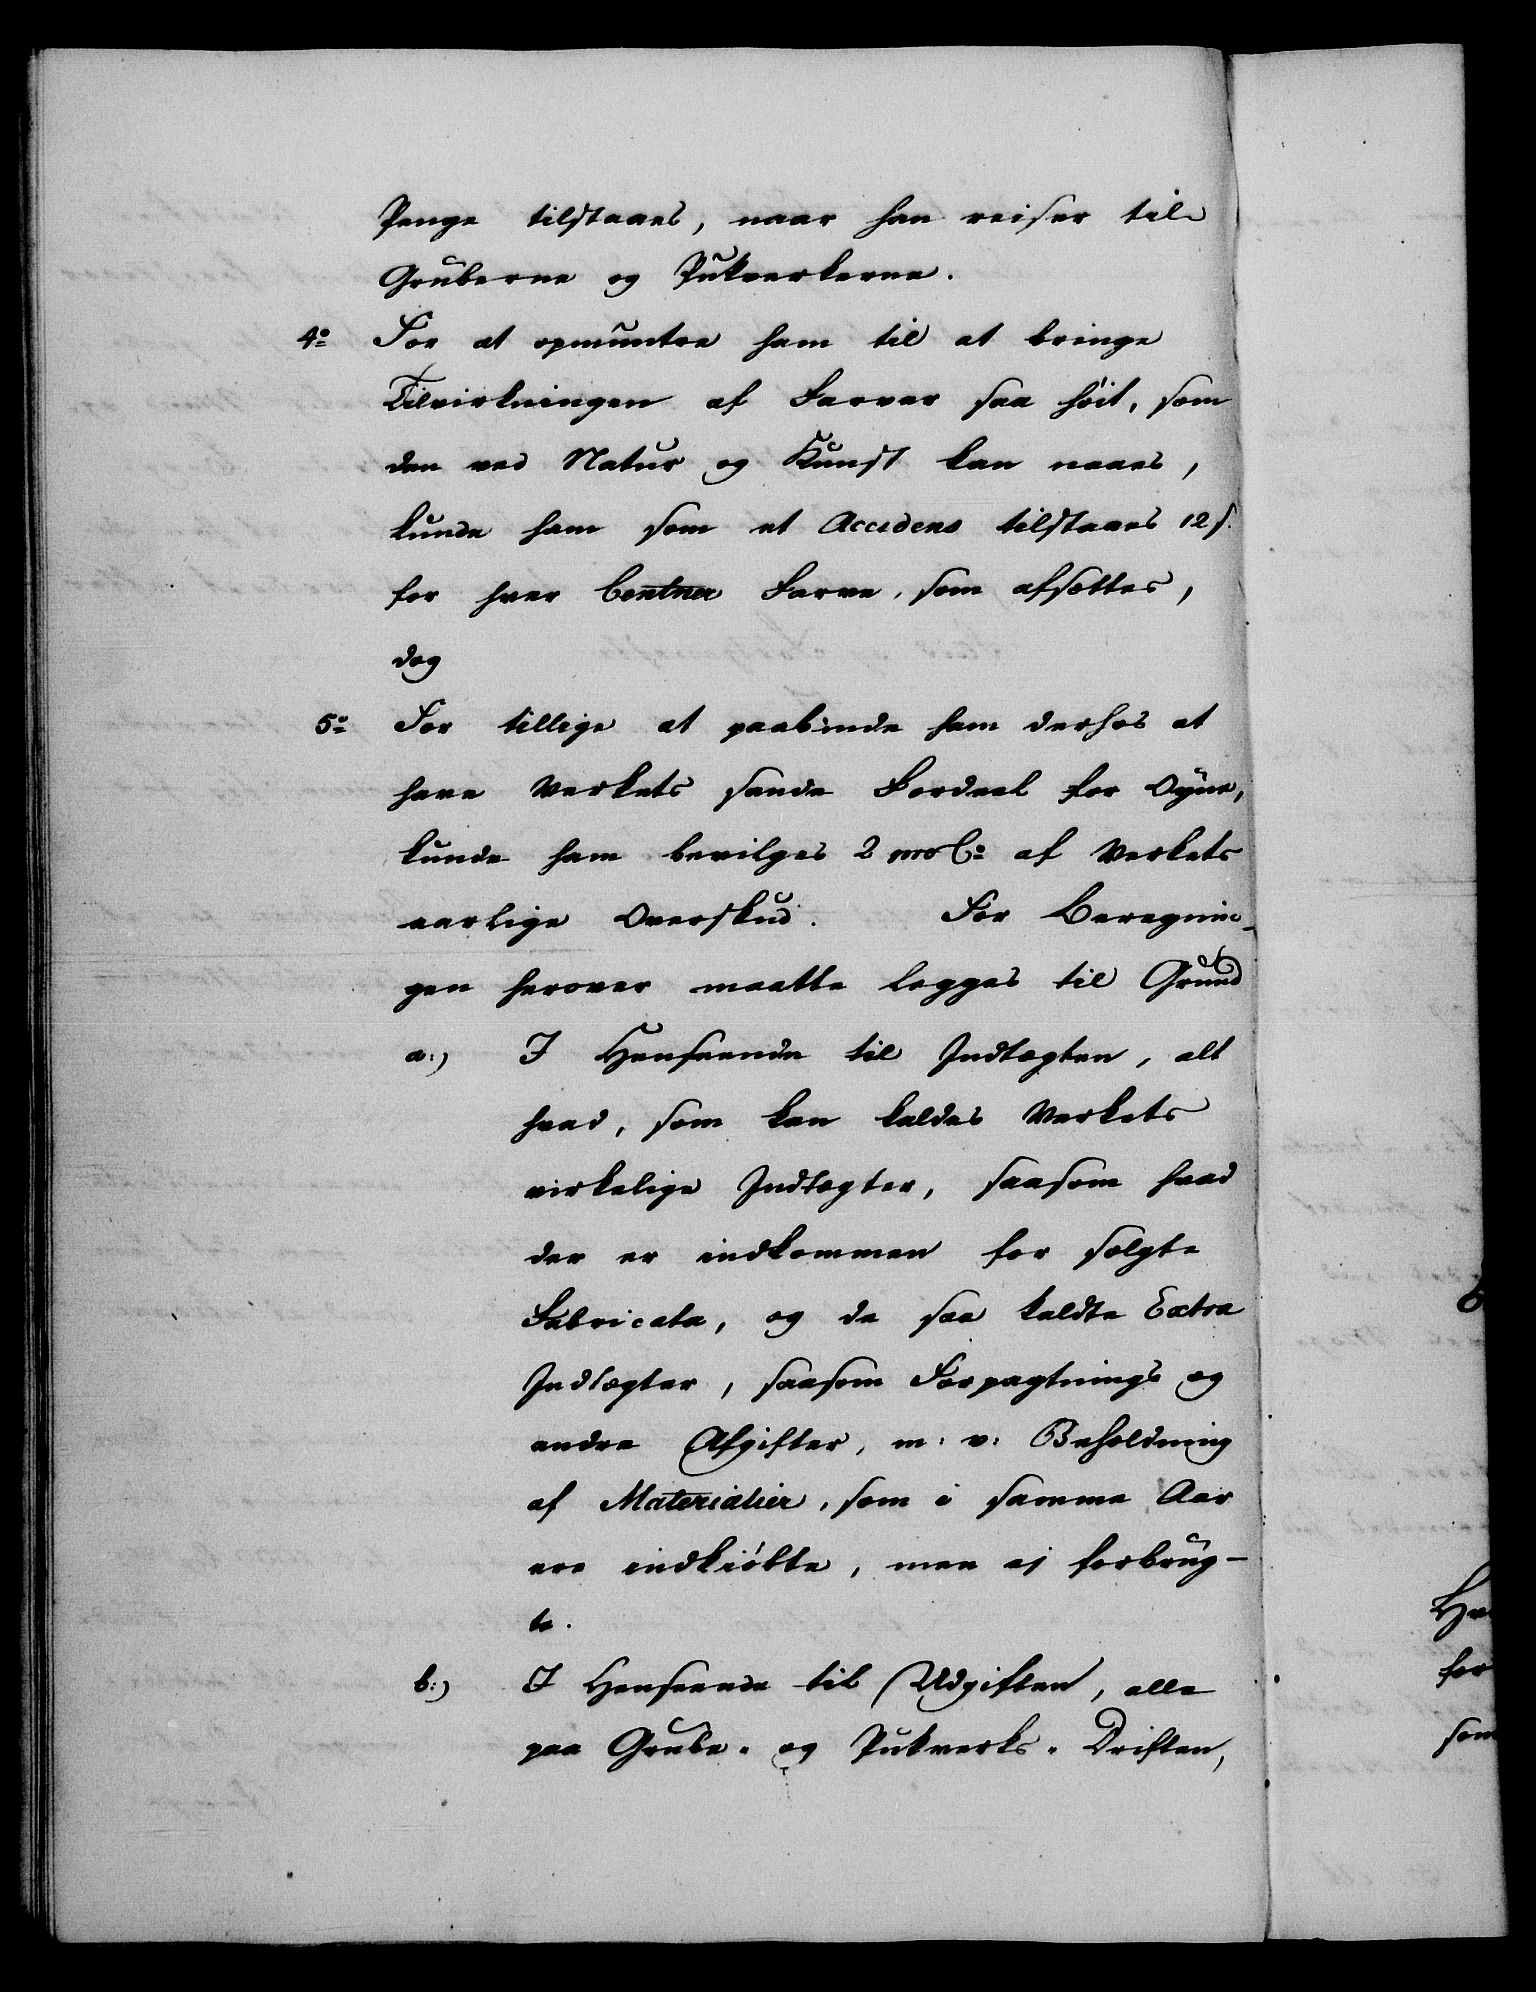 Penge tilstaaes, naar han reiser til
Gruberne og Pukverkerne.
4º For at opmuntre ham til at bringe
Tilvirkningen af Farver saa höit, som
den ved Natur og Kunst kan naaes,
kunde ham som et Accidens tilstaaes 12 s.
for hver Centner Farve, som afsættes,
dog
5º For tillige at paabinde ham derhos at
have Verkets sande Fordeel for Öyne,
kunde ham bevilges 2 pro Cº af Verkets
aarlige Overskud. For Beregnin-
gen herover maatte legges til Grund
a:) I Henseende til Indtægten, alt
hvad, som kan kaldes Verkets
virkelige Indtægter, saasom hvad
der er indkommen for solgte
Fabricata, og de saa kaldte Extra
Indtægter, saasom Forpagtnings og
andre Afgifter, m: v: Beholdning
af Materialier, som i samme Aar
ere indkiöbte, men ej forbrug-
te.
b:) I Henseende til Udgiften, alle
paa Grube- og Pukverks- Driften,
Hv
for
som